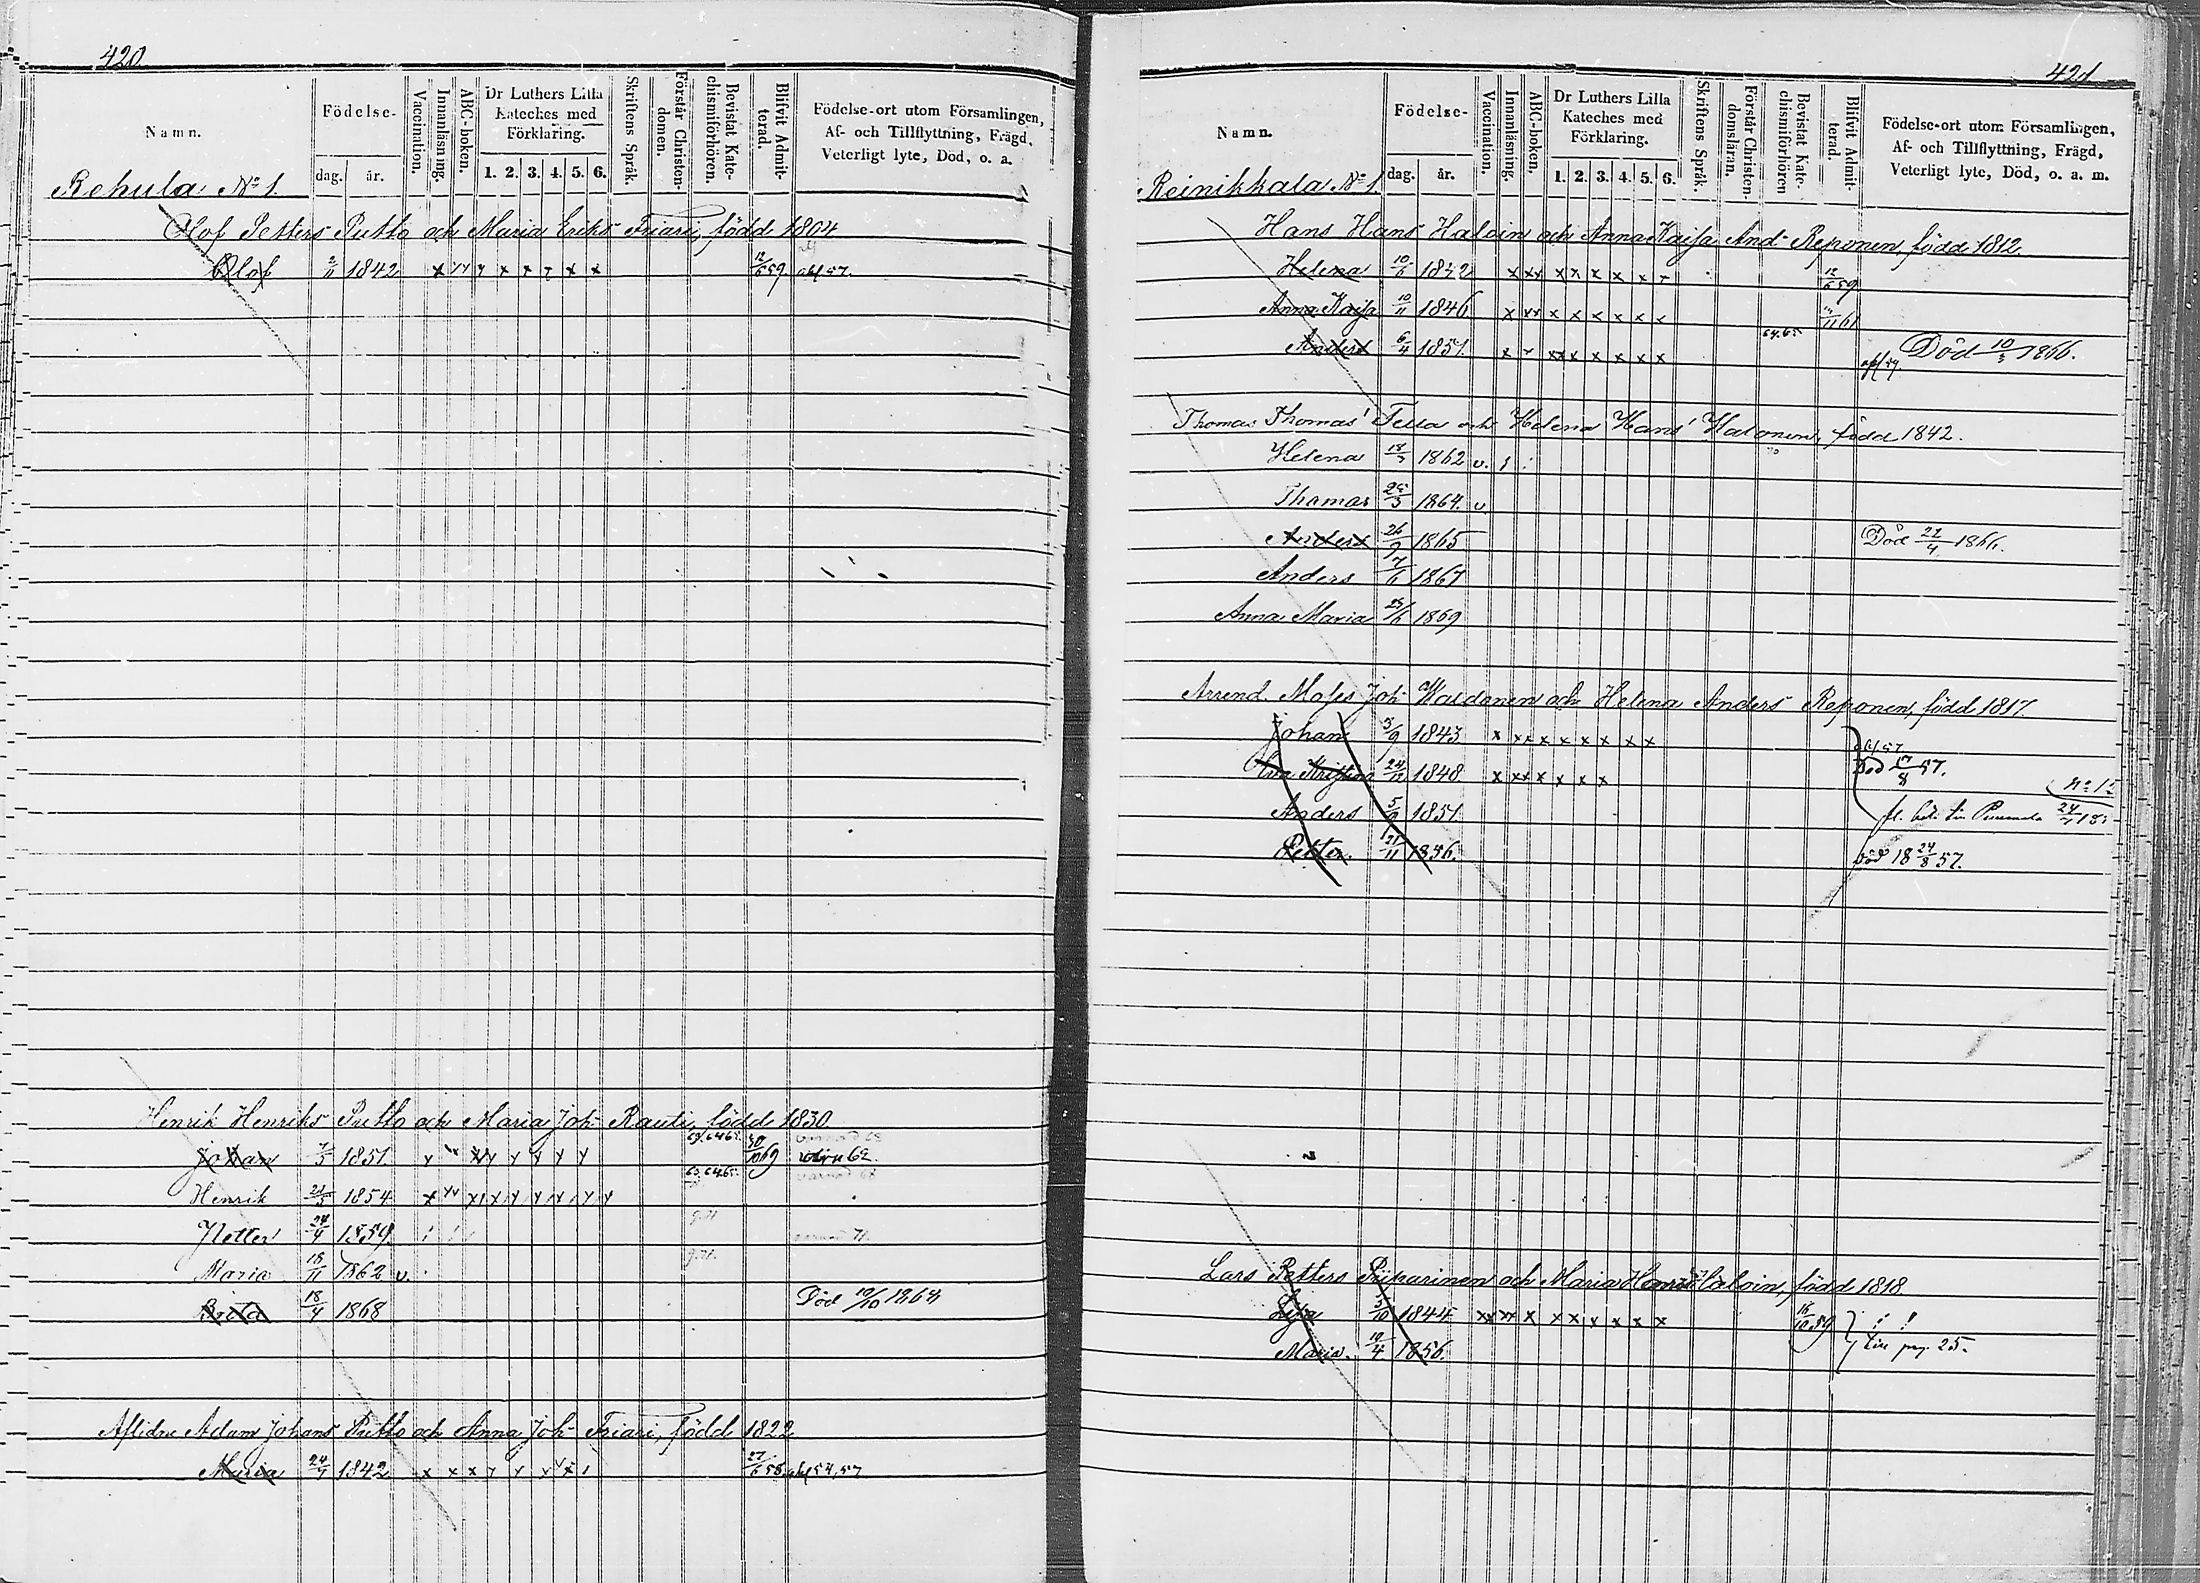 420
Namn.
Födelse-
dag.
år.
Vaccination.
Innanläsning.
ABC-boken.
Dr Luthers Lilla
Kateches med
Förklaring.
1. 2. 3. 4. 5. 6.
Skriftens Språk.
Förstår Christen-
domen.
Bevistat Kate-
chismiförhören.
Blifvit Admit-
terad.
Födelse-ort utom Församlingen,
Af- och Tillflyttning, Frägd,
Veterligt lyte, Död, o. a.
Rehula No 1.
Olof Petters Putto och Maria Eriks Friari, född 1804
Olof 1842 x x x x x x 12/6 59.
Henrik Henriks Putto och Maria Joh Rauti, född 1830
Johan 1851. 62.
Henrik 21/3 1854
Petter 24/4 1859
Maria 18/11 1862 v.
18/4 1868 Död 1868
Aflidne Adam Johans Putto och Anna Joh Friari, född 1822
Maria 1842 x x x 27/6 58 54,57
421
Namn.
Födelse-
dag.
år.
Vaccination.
Innanläsning.
ABC-boken,
Dr Luthers Lilla
Kateches med
Förklaring.
1. 2. 3. 4. 5. 6.
Skriftens Språk.
Förstår Christen-
domsläran.
Bevistat Kate-
chismiförhören
Blifvit Admit-
terad.
Födelse-ort utom Församlingen,
Af- och Tillflyttning, Frägd,
Veterligt lyte, Död, o. a. m.
Reinikkala No 1.
Hans Hans Haloin och Anna Kaisa And Reponen, född 1812.
Helena 1842 x xx x x x x x 12/6 59
Anna Kaisa 10/11 1846 x xx x x x x x x 61
Anders 6/4 1851. 64.65 Död 10/3 1866.
Thomas Thomas' Tella och Helena Hans' Halonen, född 1842.
Helena 1862 v.
Thomas 1864. v
Anders 26/9 1865 Död 22/4 1866.
Anders 7/6 1867
Anna Maria 1869
Arrend. Moses Joh Waldonen och Helena Anders Reponen, född 1817.
Johan 1843 x xx x x x x x x
Eva Kristina 24/12 1848. x xx x x x x Död 57.
Anders 1851.
Petter. 21/11 1856. död 18 24/8 57.
Lars Petters Piiparinen och Maria Hans Haloin, född 1818.
Lisa 5/10 1844 xx xx x x x x x x x 59
Maria. 1856. pag. 25.